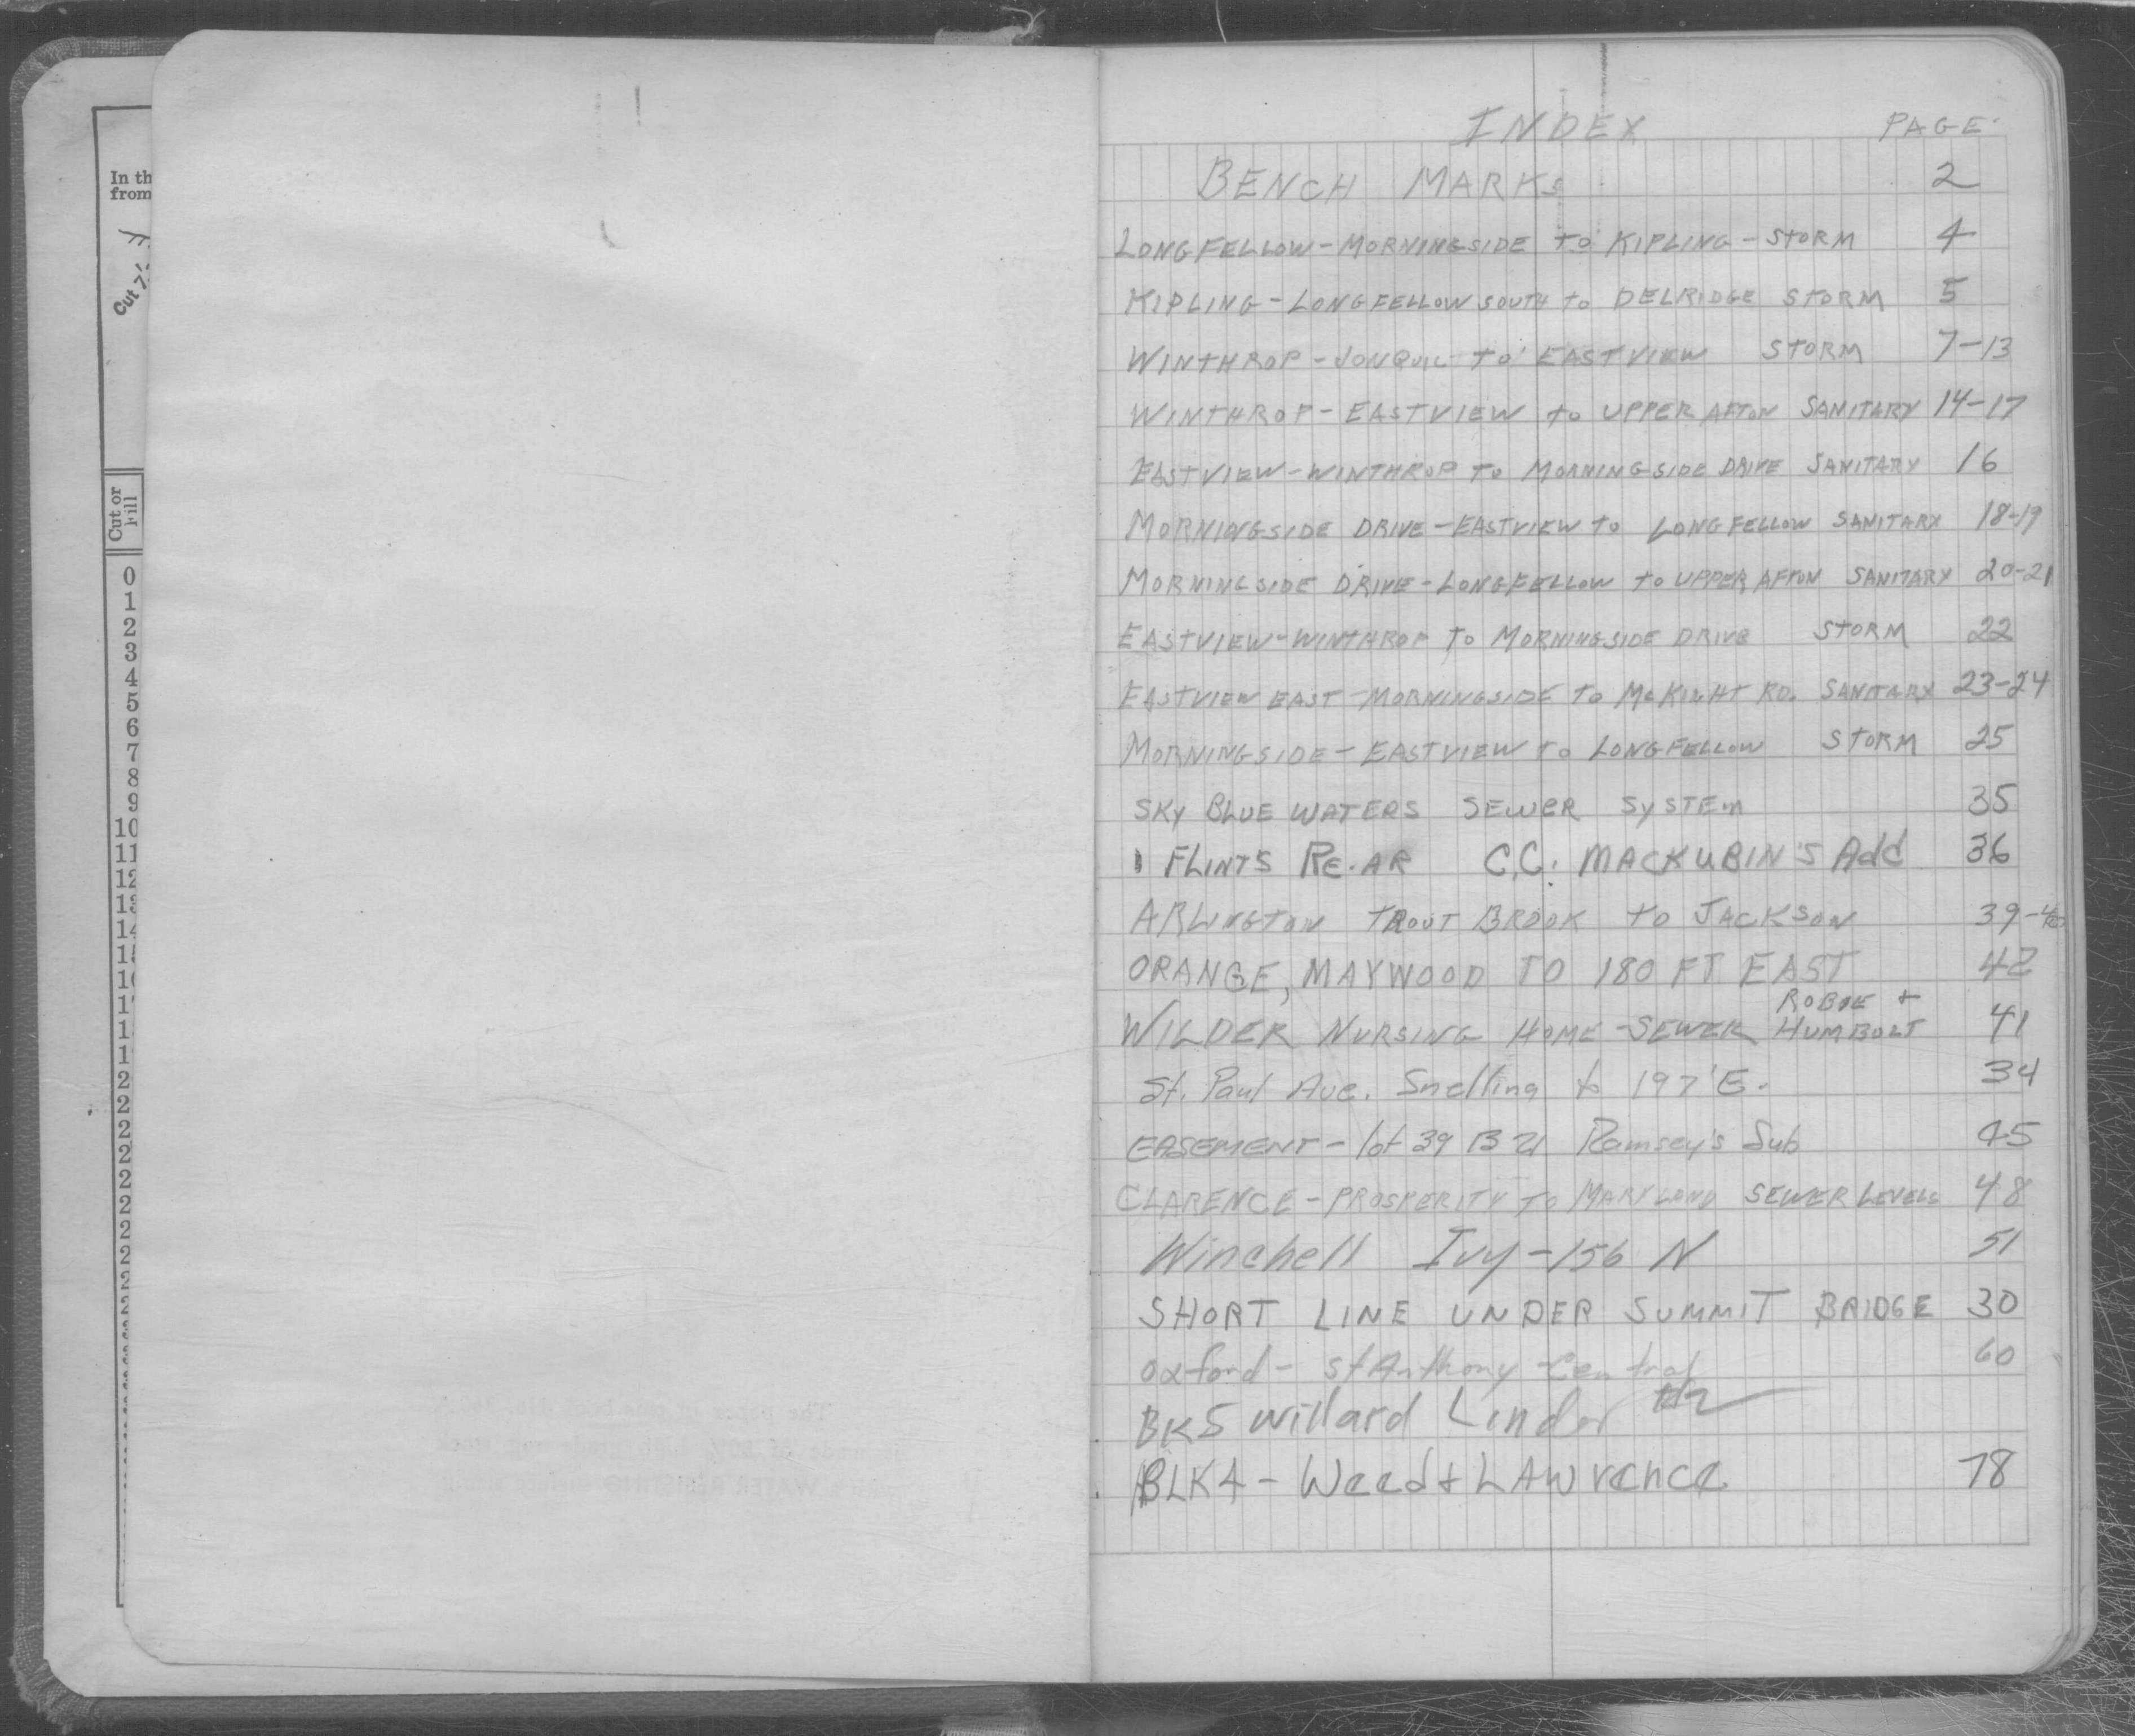 In th
from
Cut
Cut or
Fill
0
1
2
3
4
5
6
7
8
9
10
11
12
INDEX PAGE
BENCH MARKS 2
LONGFELLOW - MORNINGSIDE to KIPLING - STORM 4
KIPLING - LONGFELLOW SOUTH to DELRIDGE STORM 5
WINTHROP - JONQUIL TO EASTVIEW STORM 7-13
WINTHROP - EASTVIEW to UPPER AFTON SANITARY 14-17
EASTVIEW - WINTHROP TO MORNINGSIDE DRIVE SANITARY 16
MORNINGSIDE DRIVE - EASTVIEW to LONGFELLOW SANITARY 18-19
MORNINGSIDE DRIVE - LONGFELLOW TO UPPER AFTON SANITARY 20-21
EASTVIEW - WINTHROP TO MORNINGSIDE DRIVE STORM 22
EASTVIEW EAST - MORNINGSIDE TO McKIGHT RD. SANITARY 23-24
MORNINGSIDE - EASTVIEW TO LONGFELLOW STORM 25
SKY BLUE WATERS SEWER SYSTEM 35
FLINT'S RE. AR C.C. MACKUBIN'S Add 36
ARLINGTON TROUT BROOK TO JACKSON 39-40
ORANGE, MAYWOOD TO 180 FT EAST 42
ROBIE +
WILDER NURSING HOME - SEWER HUMBOLT 41
St. Paul Ave. Snelling to 197' E. 34
EASEMENT - lot 39 B 21 Ramsey's Sub 45
CLARENCE - PROSPERITY TO MARYLAND SEWER LEVELS 48
Winchell Ivy - 156 N 51
SHORT LINE UNDER SUMMIT BRIDGE 30
Oxford - St Anthony Central 60
BK5 Willard Linder
BLK4 - Weed + LAWrence 78